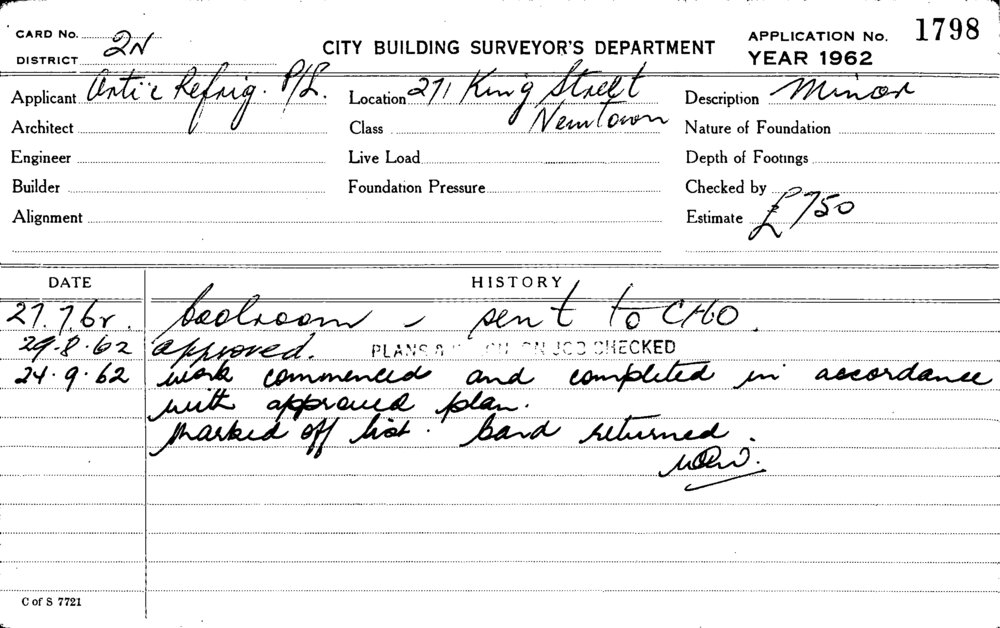 CARD No. 2N
CITY BUILDING SURVEYOR'S DEPARTMENT
APPLICATION No. 1798
DISTRICT
YEAR 1962
Applicant Artic Refrig. P/L.
Location 271 King Street
Newtown
Description Minor
Architect
Class
Nature of Foundation
Engineer
Live Load
Depth of Footings
Builder
Foundation Pressure
Checked by
Alignment
Estimate £750
DATE
HISTORY
27.7.62. coolroom - sent to CHO.
29.8.62 approved. PLANS & ON JOB CHECKED
24.9.62 work commenced and completed in accordance
with approved plan.
Marked off list. Card returned.
C of S 7721